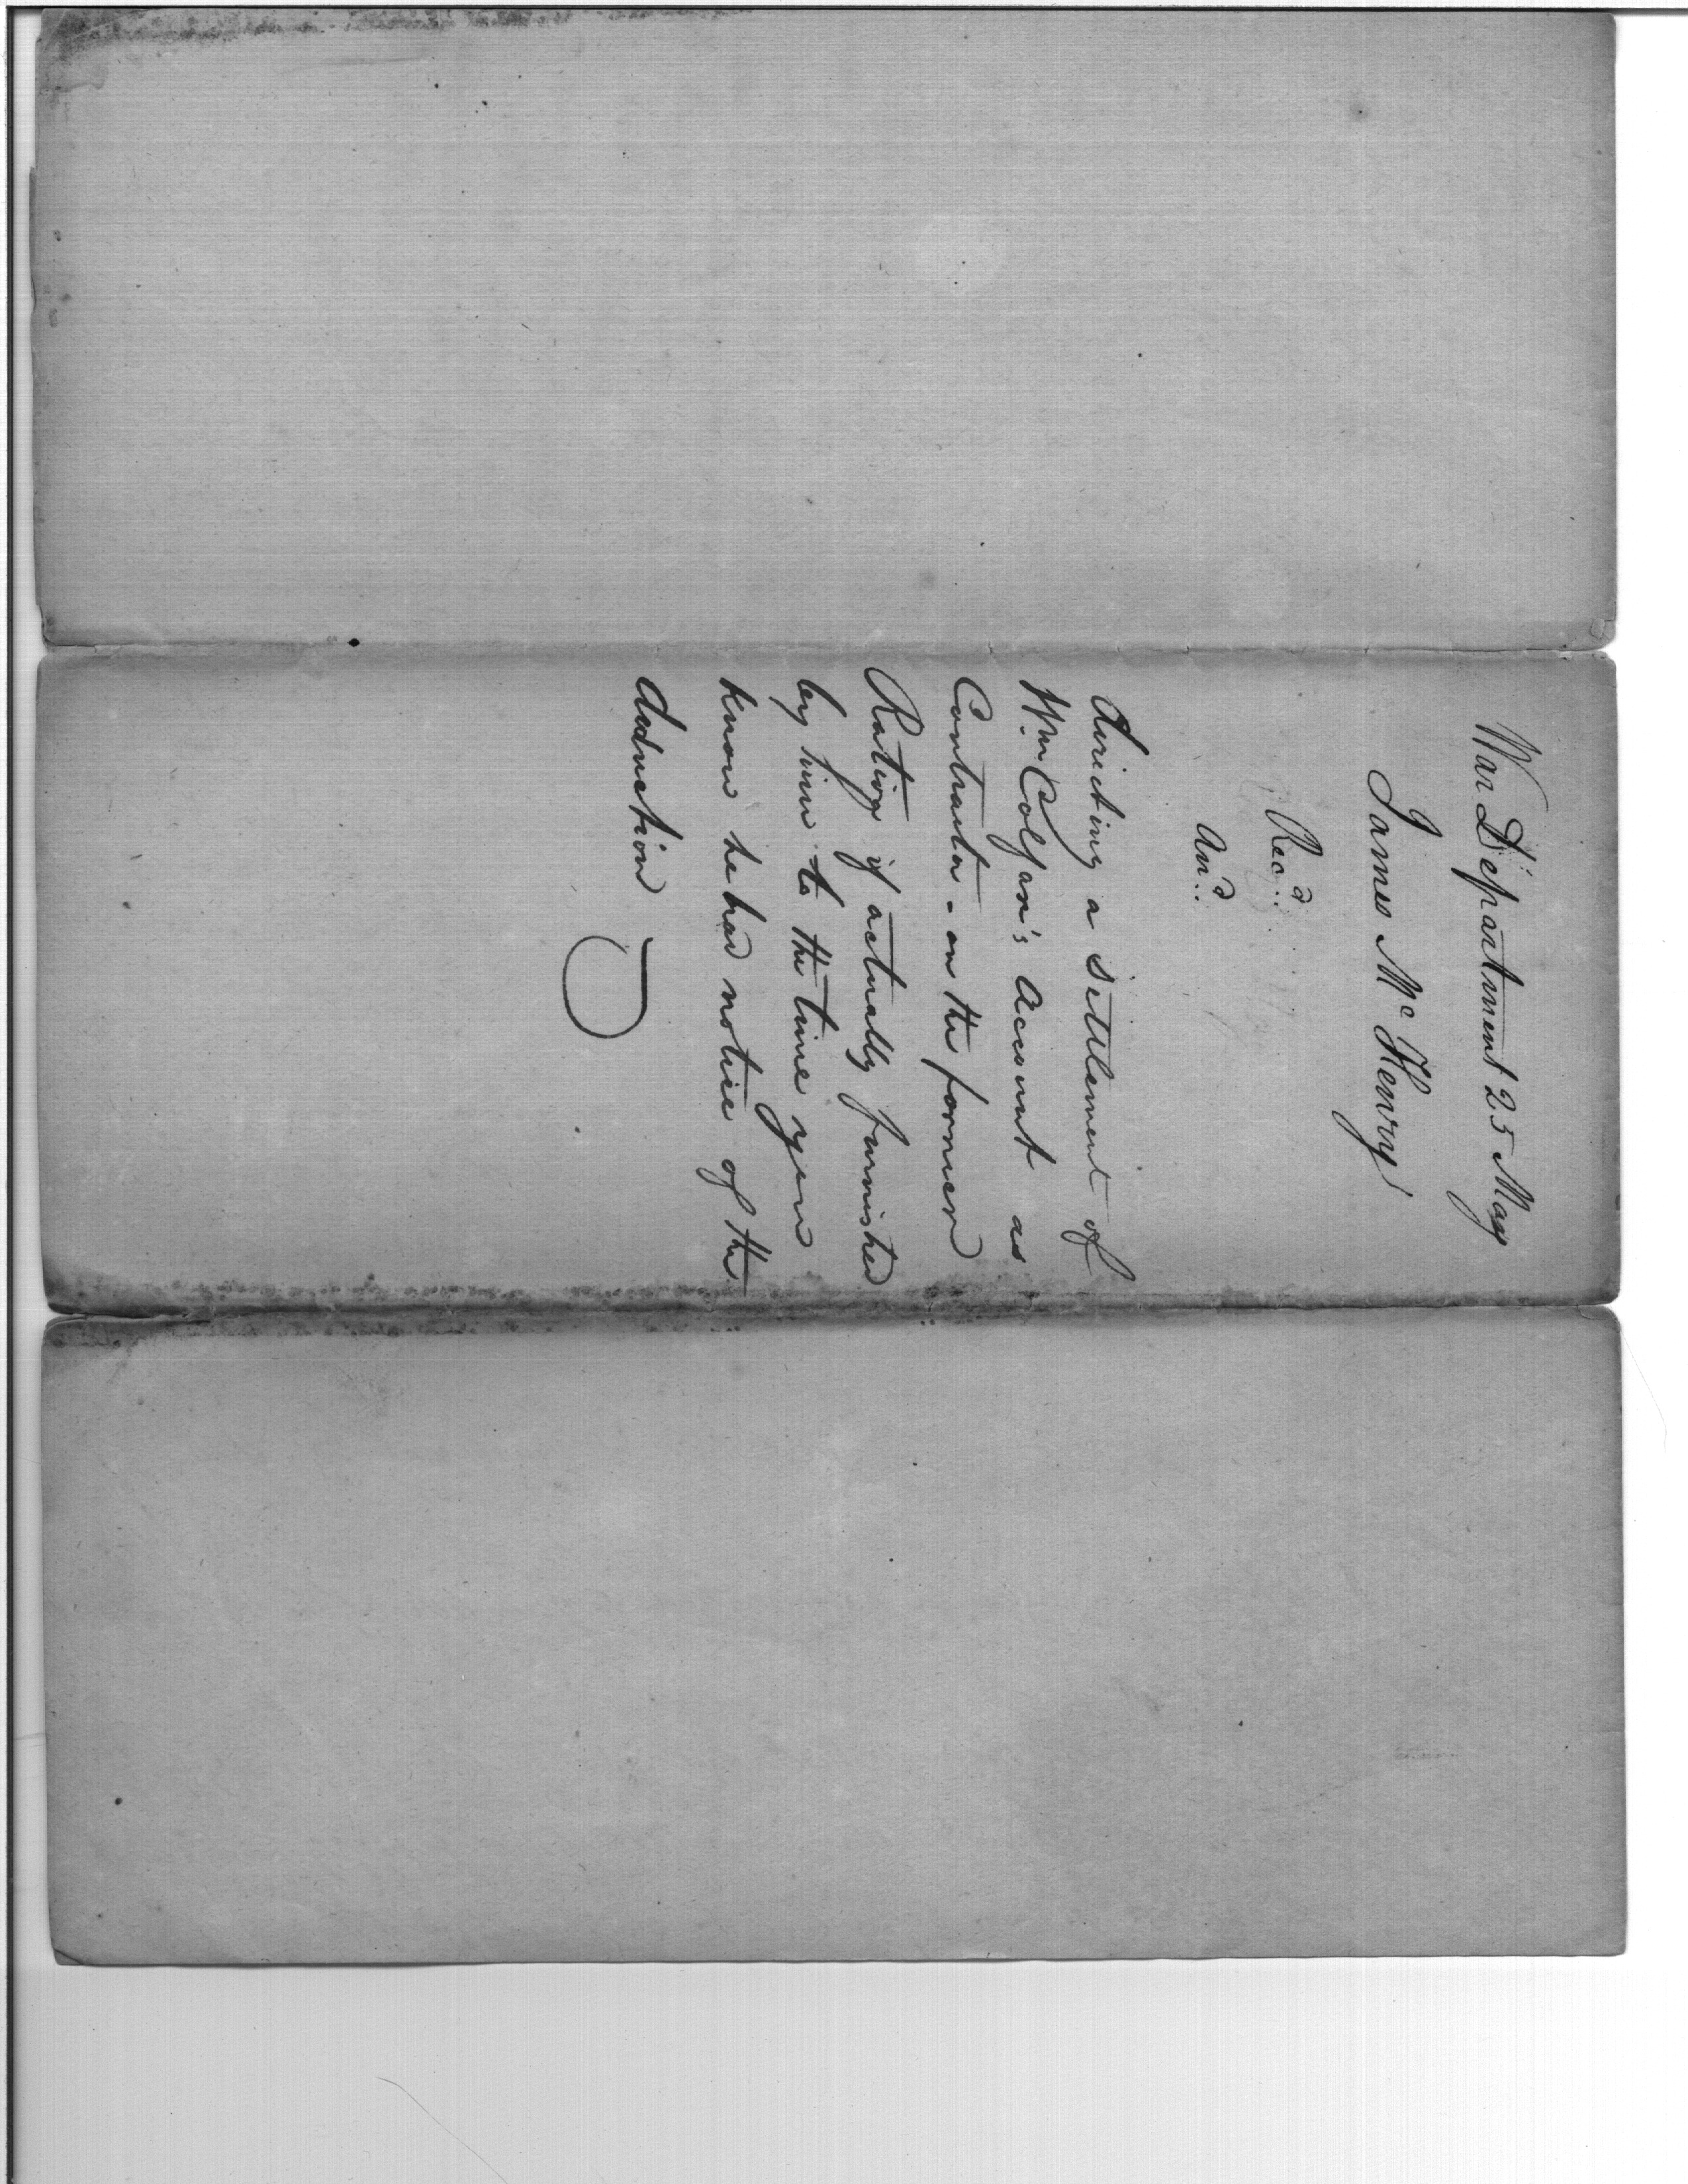 War Department 25 May
James McHenry
Rec.d
An.d
directing a settlement of
Wm. Colfax's Account as
Contractor - on the former
Rations if actually furnished
by him to the time you
know he had notice of the
deduction